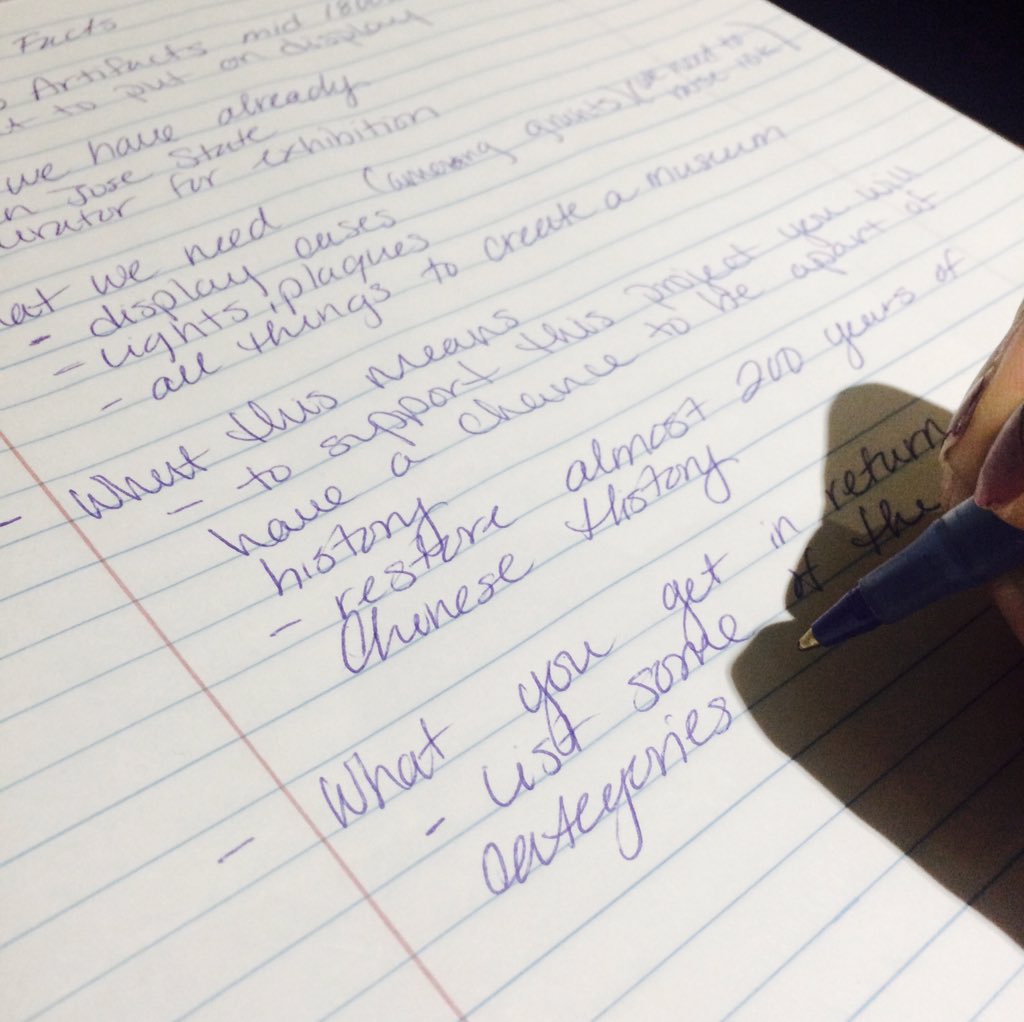 Facts
Artifacts mid 180
to put on display
we have already
Jose State
curator for exhibition
what we need (amazing grants) (we need to
raise 15k)
- display cases
- lights, plaques
- all things to create a museum
- What this means
- to support this project you will
have a chance to be apart of
history
- restore almost 200 years of
Chinese History
- What you get in return
- List some of the
categories